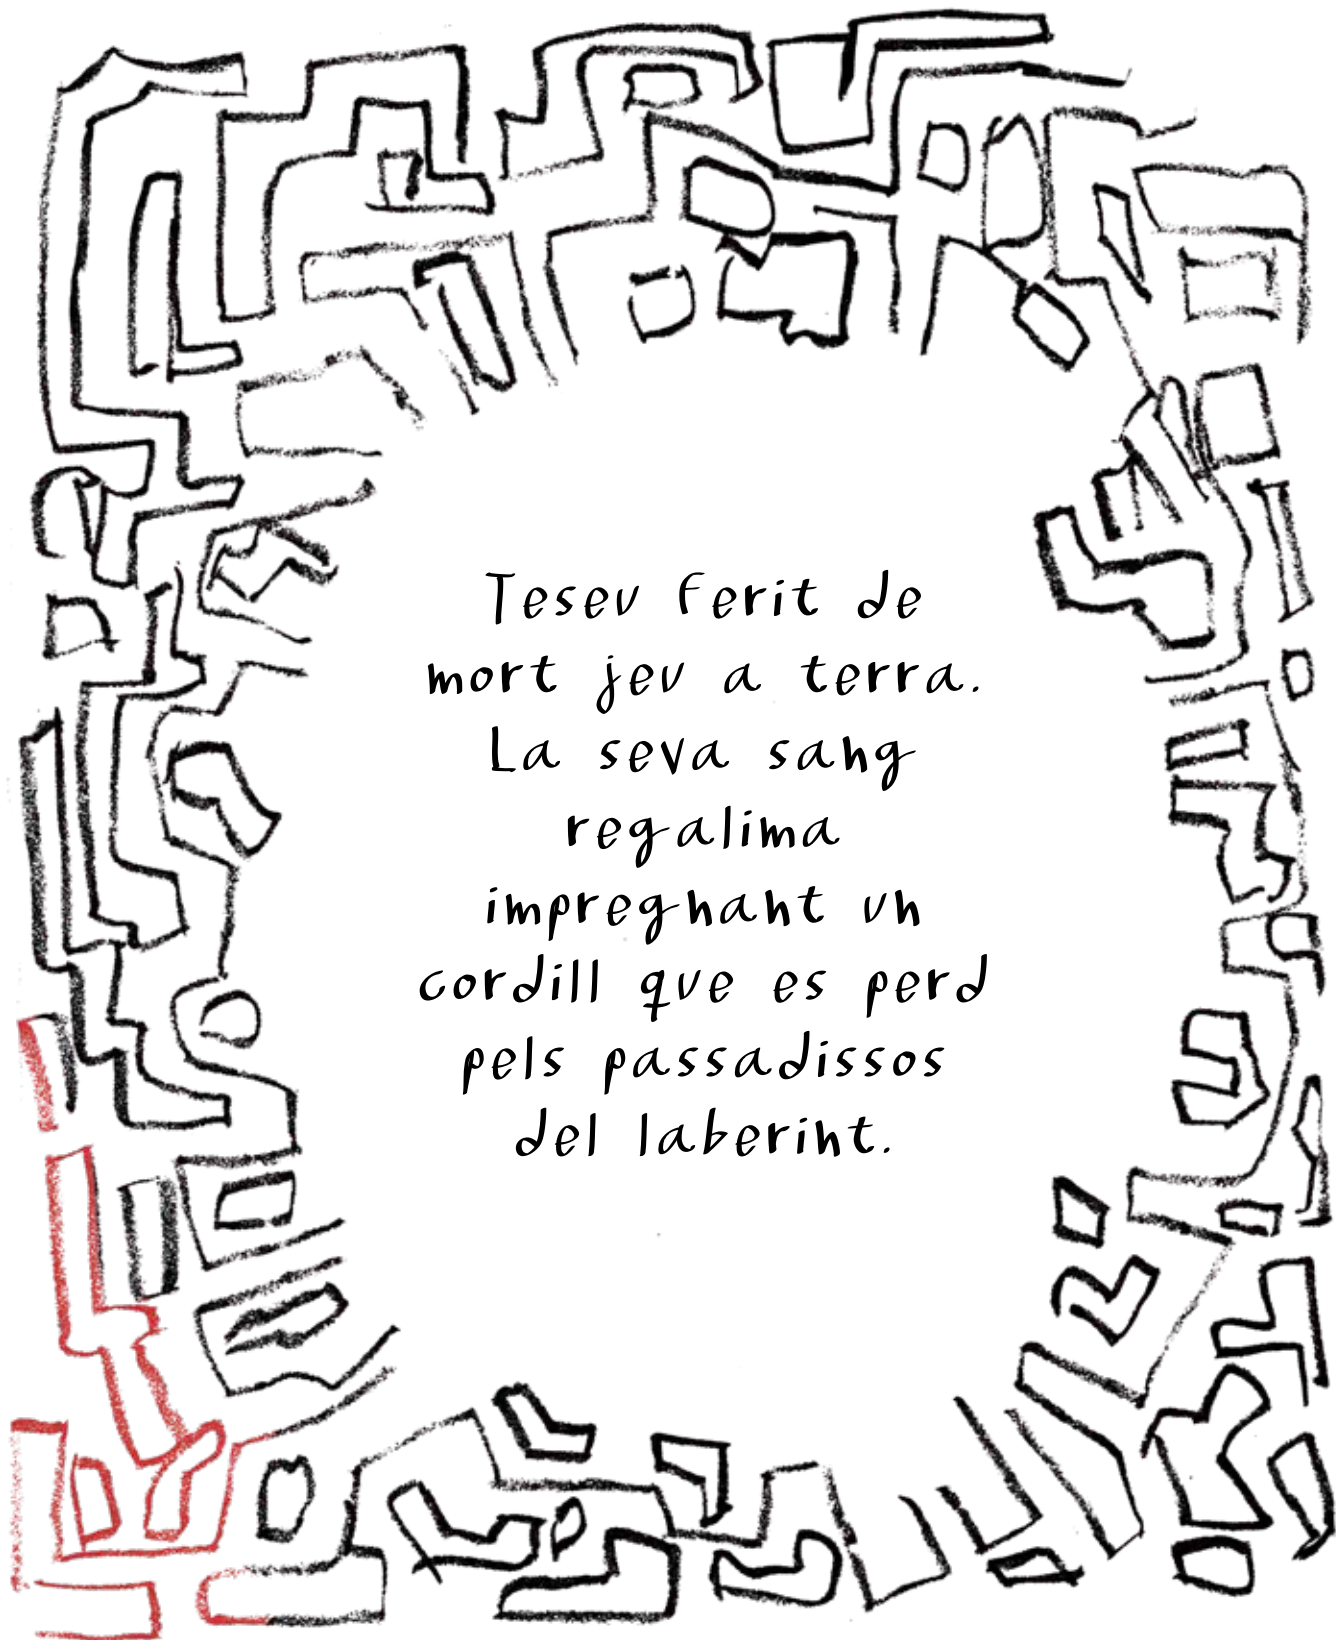 Teseu ferit de
mort jeu a terra.
La seva sang
regalima
impregnant un
cordill que es perd
pels passadissos
del laberint.